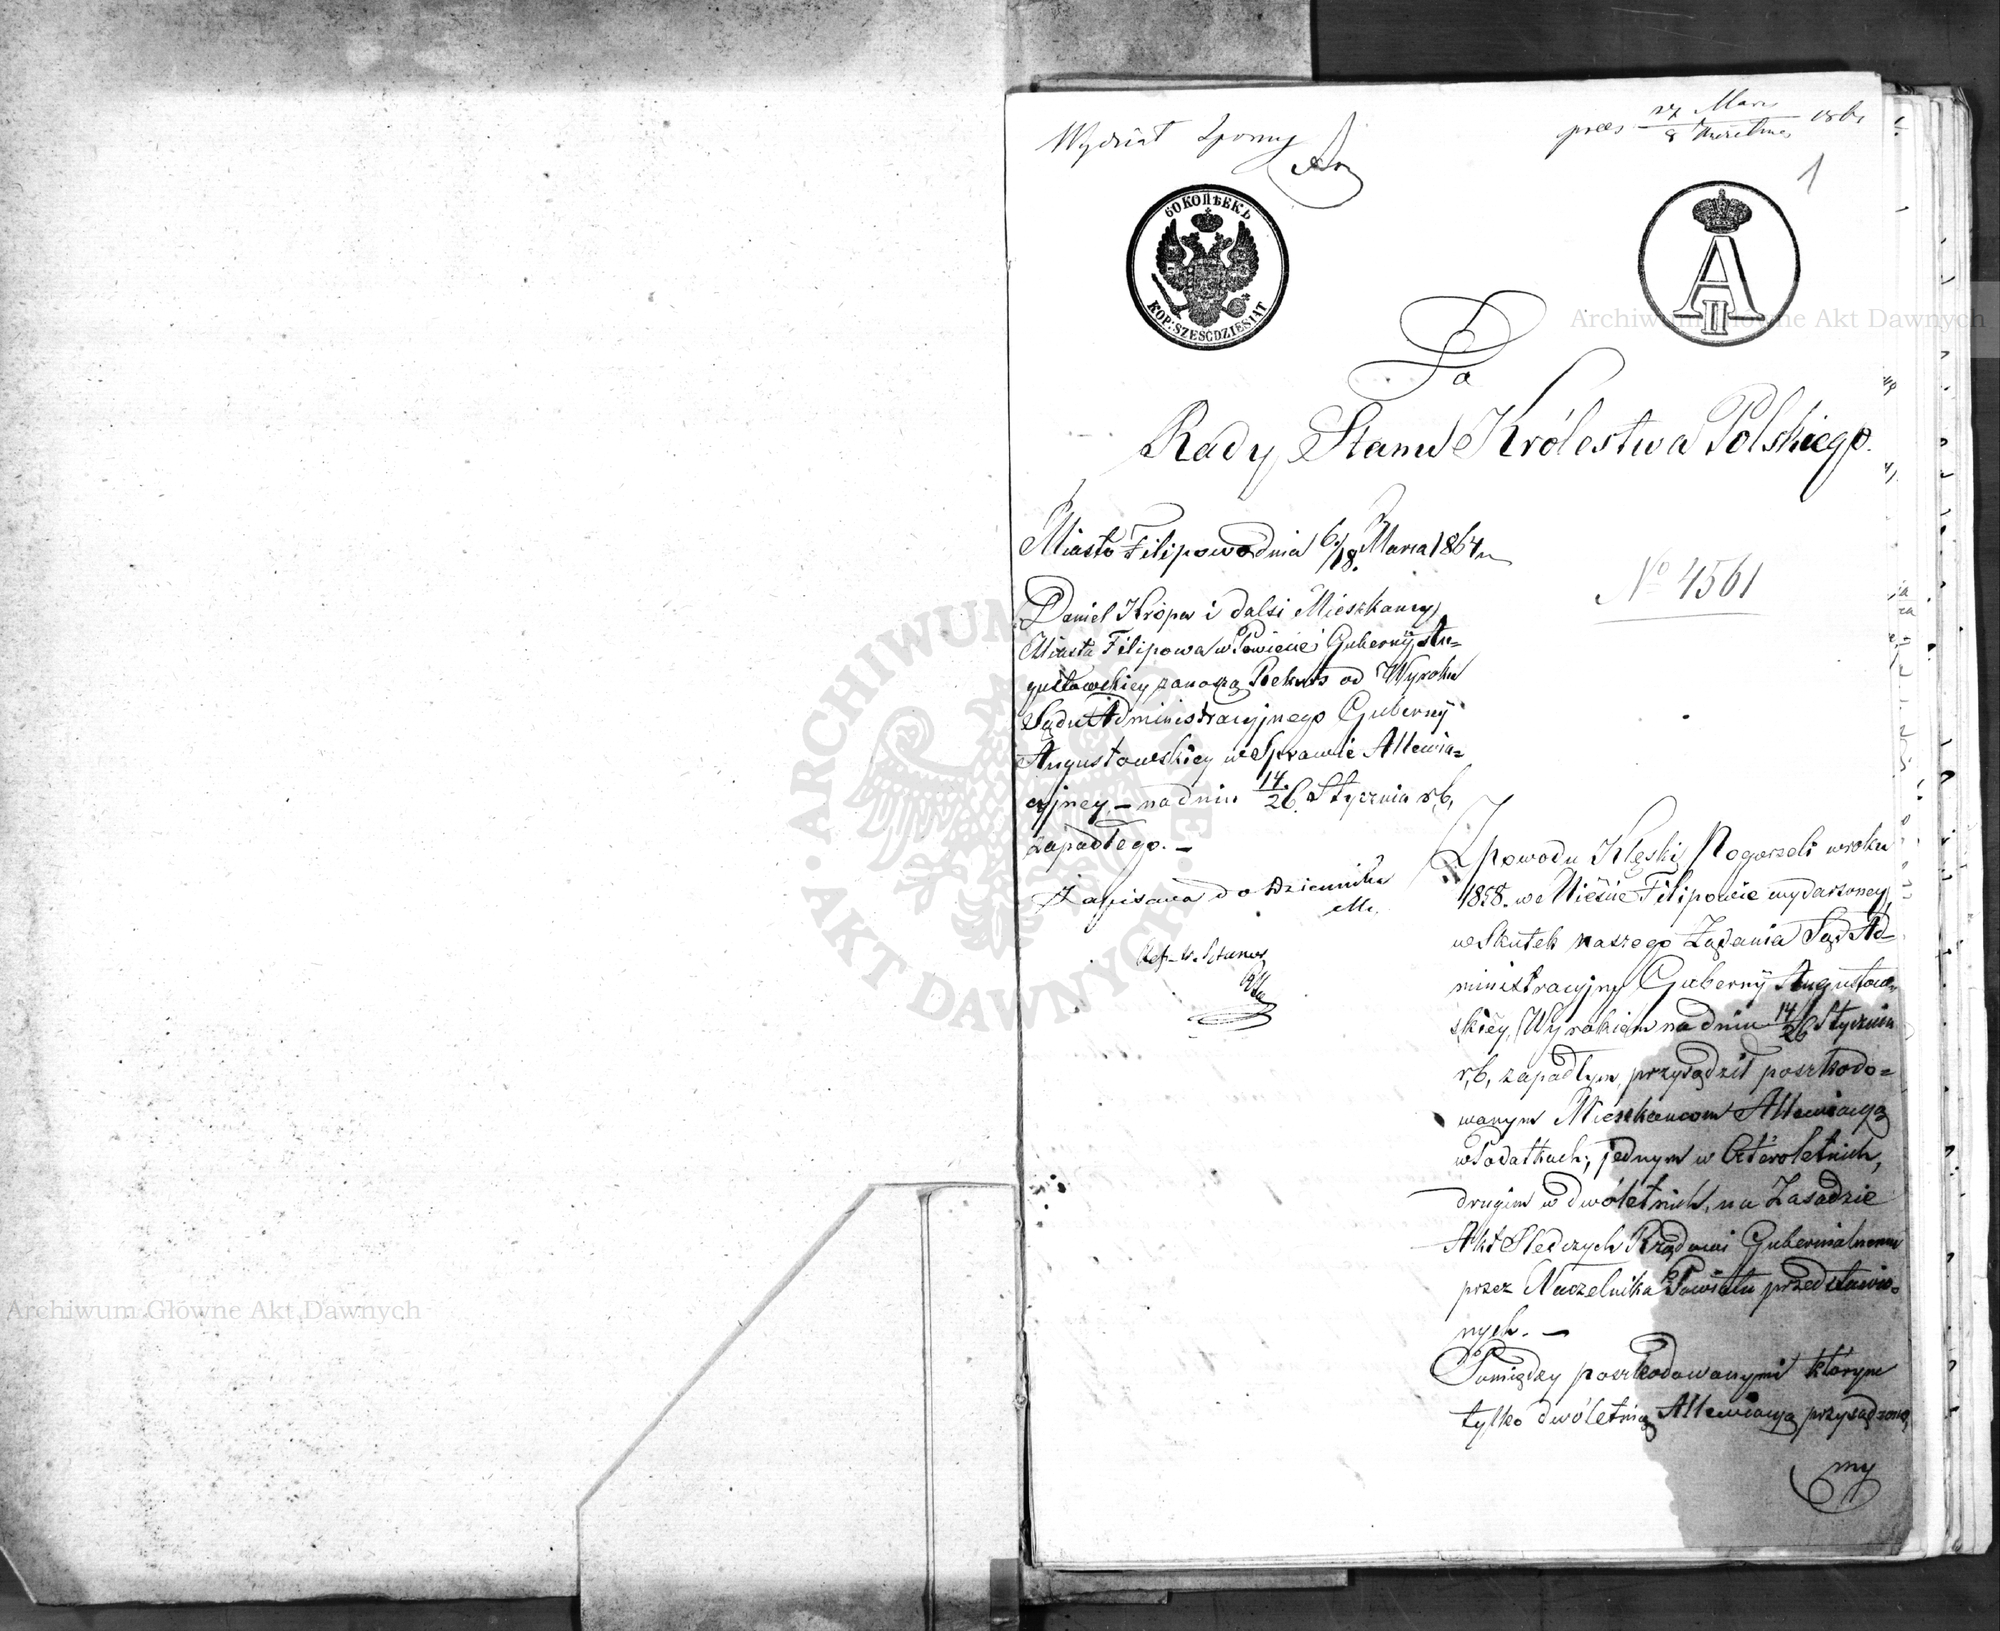 Wydział Sporny
prez 27 Marca / 8 Kwietnia 1861
1
60 КОПѢЕКЪ
KOP: SZEŚĆDZIESIĄT
A
II
Do
Rady Stanu Królestwa Polskiego.
Miasto Filipowo dnia 6/18. Marca 1864 r.
No 4561
Daniel Kröper i dalsi Mieszkancy
Miasta Filipowa w Powiecie i Gubernÿ Au=
gustowskiey zanoszą Rekurs od Wyroku
Sądu Administracyjnego Gubernÿ
Augustowskiey w Sprawie Allewia=
cyjney, – na dniu 14/26 Stycznia r, b,
zapadłego. –
Zapisana do Dziennika
Z powodu Klęski Pogorzeli w roku
1858. we Mieście Filipowie wydarzoney,
w Skutek naszego Żądania Sąd Ad=
ministracyjny Gubernÿ Augustow=
skiéy, Wyrokiem na dniu 14/26 Stycznia
r, b, zapadłym, przysądził poszkodo=
wanym Mieszkancom Allewiacyą
w Podatkach; jednym w Czteroletnich,
drugim w dwóletnich, na Zasadzie
Akt Sledczych Rządowi Gubernialnemu
przez Naczelnika Powiatu przedstawio=
nych. –
Pomiędzy poszkodowanymi którym
tylko dwóletnią Allewiacyą przysądzono,
my
ARCHIWUM GŁÓWNE AKT DAWNYCH
Archiwum Główne Akt Dawnych
Archiwum Główne Akt Dawnych